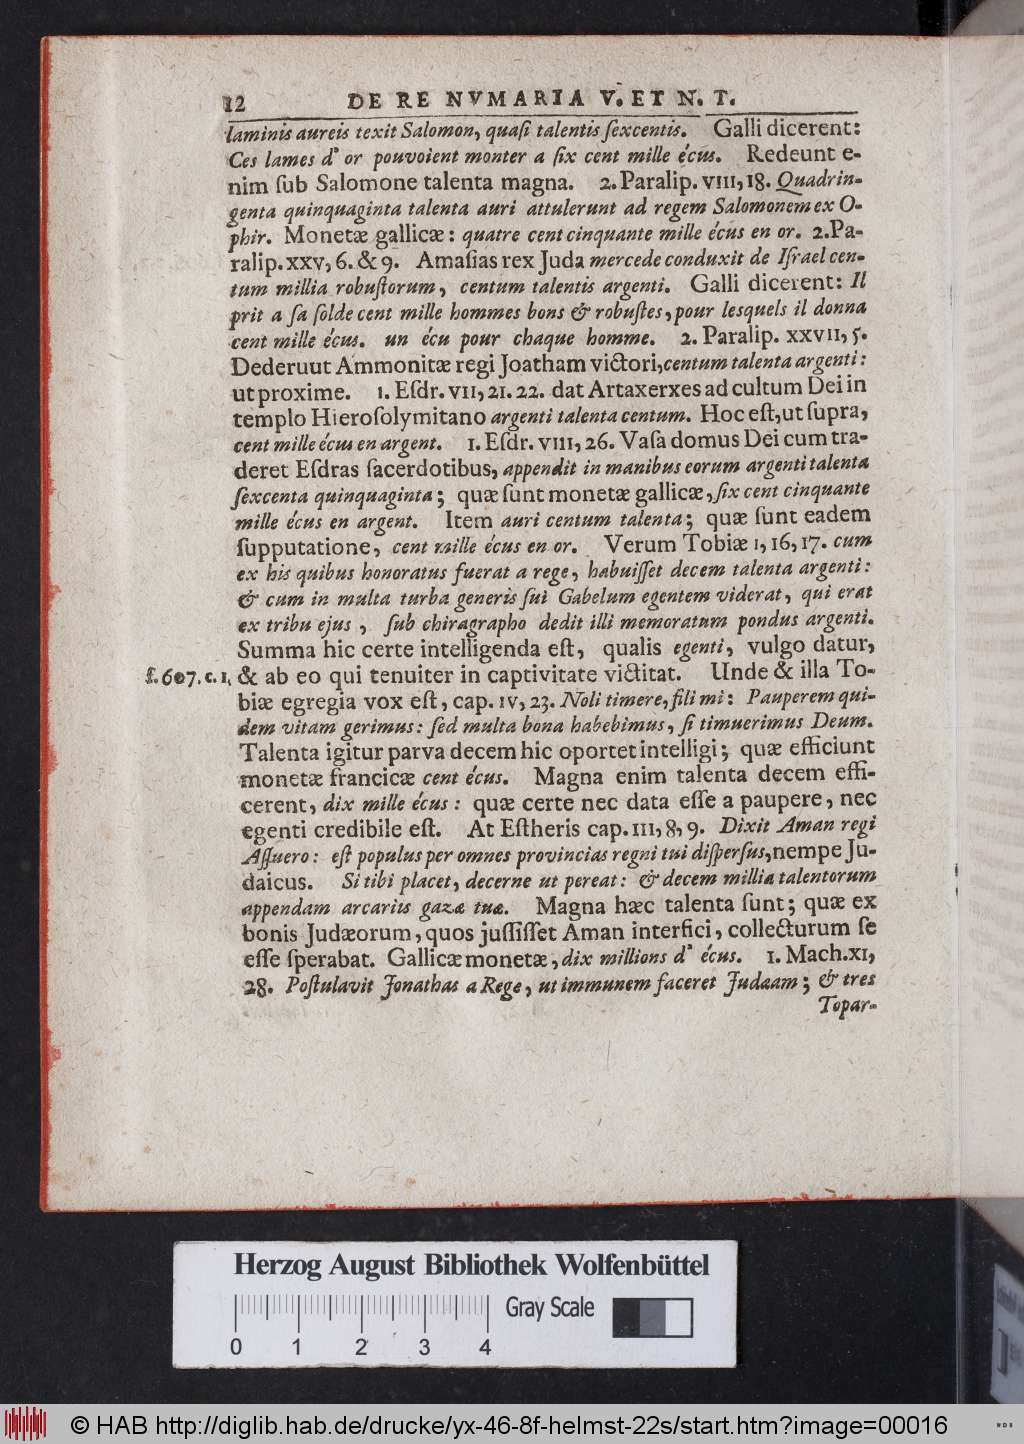 12 DE RE NVMARIA V. ET N. T.
laminis aureis texit Salomon, quaſi talentis ſexcentis. Galli dicerent:
Ces lames d'or pouvoient monter a ſix cent mille écus. Redeunt e-
nim ſub Salomone talenta magna. 2. Paralip. VIII, 18. Quadrin-
genta quinquaginta talenta auri attulerunt ad regem Salomonem ex O-
phir. Monetæ gallicæ: quatre cent cinquante mille écus en or. 2. Pa-
ralip. XXV, 6. & 9. Amaſias rex Juda mercede conduxit de Iſrael cen-
tum millia robuſtorum, centum talentis argenti. Galli dicerent: Il
prit a ſa ſolde cent mille hommes bons & robuſtes, pour lesquels il donna
cent mille écus. un écu pour chaque homme. 2. Paralip. XXVII, 5.
Dederuut Ammonitæ regi Joatham victori, centum talenta argenti:
ut proxime. 1. Eſdr. VII, 21. 22. dat Artaxerxes ad cultum Dei in
templo Hieroſolymitano argenti talenta centum. Hoc eſt, ut ſupra,
cent mille écus en argent. 1. Eſdr. VIII, 26. Vaſa domus Dei cum tra-
deret Eſdras ſacerdotibus, appendit in manibus eorum argenti talenta
ſexcenta quinquaginta; quæ ſunt monetæ gallicæ, ſix cent cinquante
mille écus en argent. Item auri centum talenta; quæ ſunt eadem
ſupputatione, cent mille écus en or. Verum Tobiæ 1, 16, 17. cum
ex his quibus honoratus fuerat a rege, habuiſſet decem talenta argenti:
& cum in multa turba generis ſui Gabelum egentem viderat, qui erat
ex tribu ejus, ſub chiragrapho dedit illi memoratum pondus argenti.
Summa hic certe intelligenda eſt, qualis egenti, vulgo datur,
ſ. 607. c. 1, & ab eo qui tenuiter in captivitate victitat. Unde & illa To-
biæ egregia vox eſt, cap. IV, 23. Noli timere, fili mi: Pauperem qui-
dem vitam gerimus: ſed multa bona habebimus, ſi timuerimus Deum.
Talenta igitur parva decem hic oportet intelligi; quæ efficiunt
monetæ francicæ cent écus. Magna enim talenta decem effi-
cerent, dix mille écus: quæ certe nec data eſſe a paupere, nec
egenti credibile eſt. At Eſtheris cap. III, 8, 9. Dixit Aman regi
Aſſuero: eſt populus per omnes provincias regni tui diſperſus, nempe Ju-
daicus. Si tibi placet, decerne ut pereat: & decem millia talentorum
appendam arcariis gazæ tuæ. Magna hæc talenta ſunt; quæ ex
bonis Judæorum, quos juſſiſſet Aman interfici, collecturum ſe
eſſe ſperabat. Gallicæ monetæ, dix millions d'écus. 1. Mach. XI,
28. Poſtulavit Jonathas a Rege, ut immunem faceret Judæam; & tres
Topar-
Herzog August Bibliothek Wolfenbüttel
Gray Scale
0 1 2 3 4
© HAB http://diglib.hab.de/drucke/yx-46-8f-helmst-22s/start.htm?image=00016